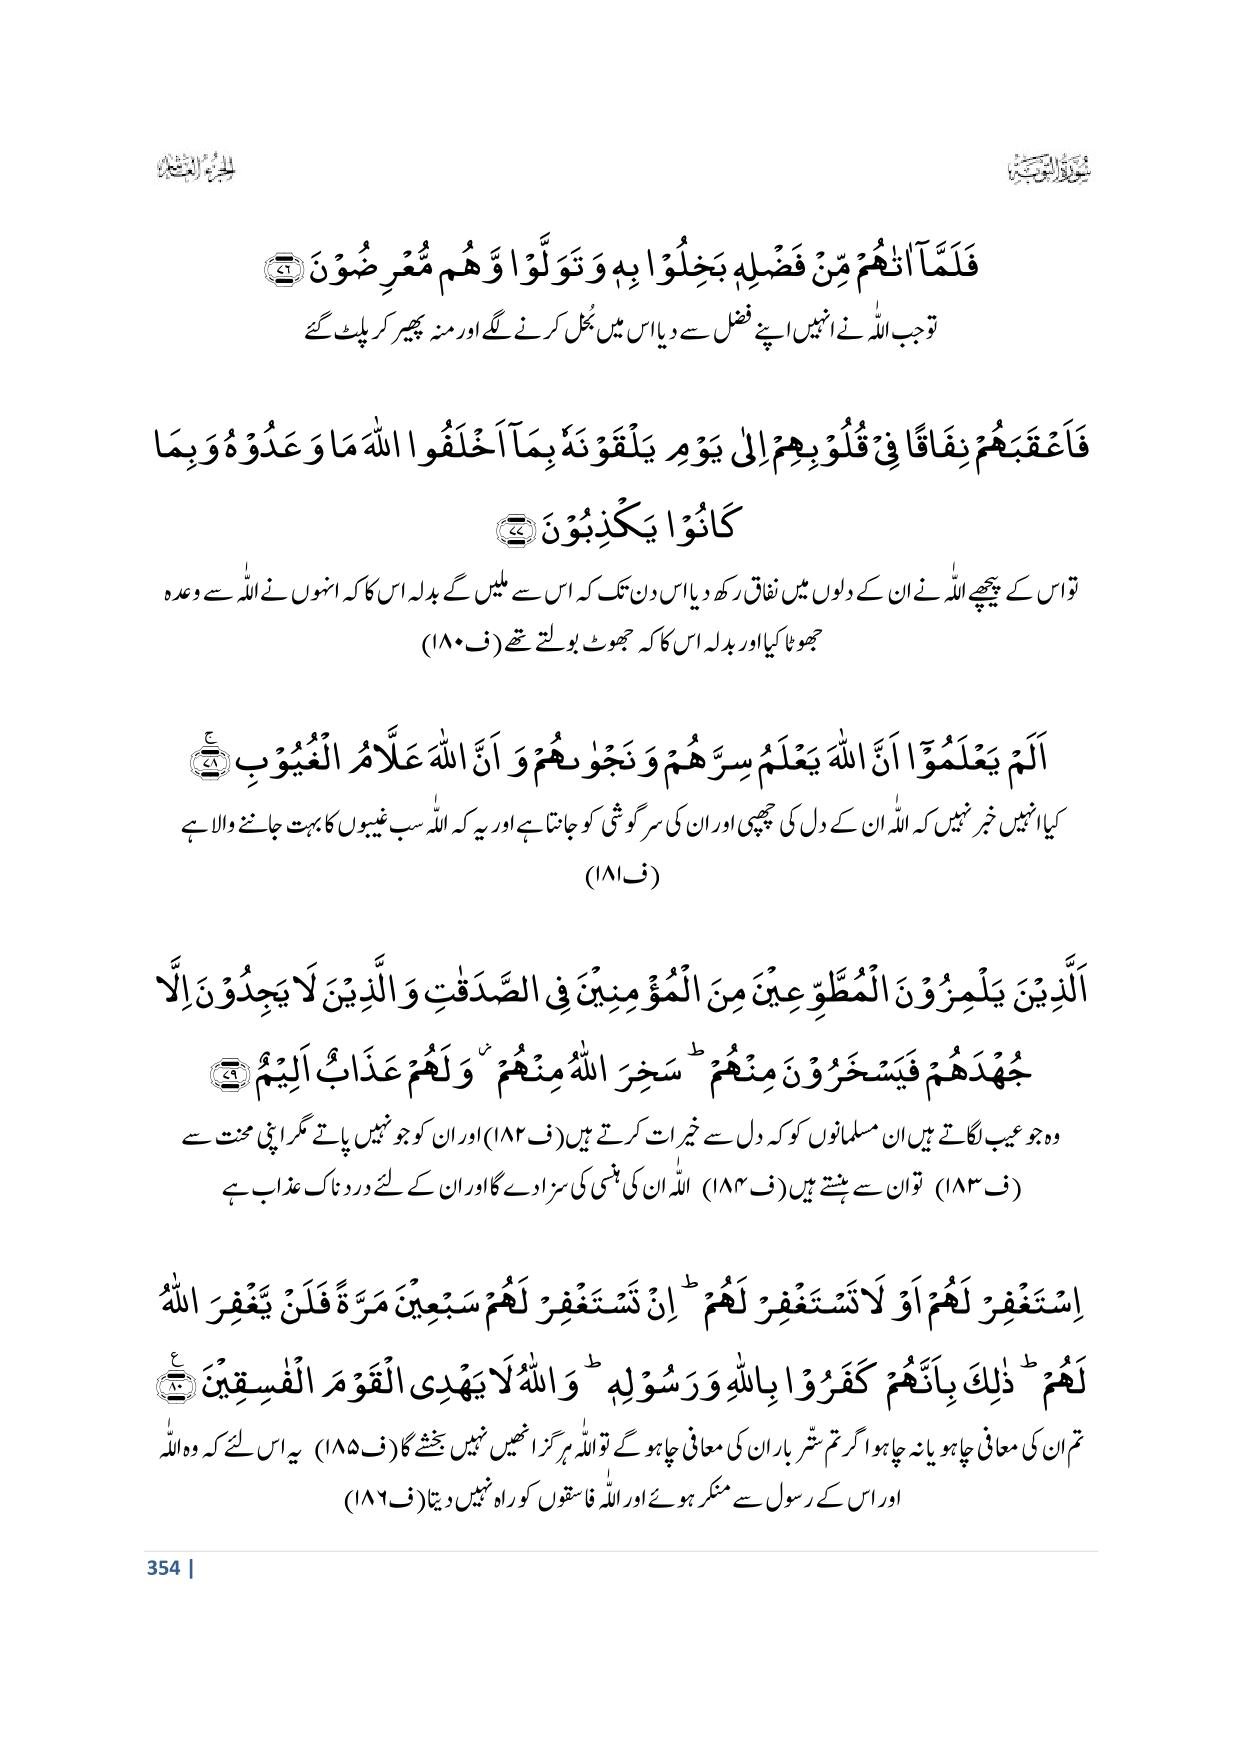 سُوۡرَةُ التَّوۡبَة
الجزء العاشر
فَلَمَّاۤ اٰتٰىهُمۡ مِّنۡ فَضۡلِهٖ بَخِلُوۡا بِهٖ وَ تَوَلَّوۡا وَّ هُم مُّعۡرِضُوۡنَ ﴿۷۶﴾
توجب اللہ نے انہیں اپنے فضل سے دیا اس میں بُخل کرنے لگے اور منہ پھیر کر پلٹ گئے
فَاَعۡقَبَهُمۡ نِفَاقًا فِیۡ قُلُوۡبِهِمۡ اِلٰی یَوۡمِ یَلۡقَوۡنَهٗ بِمَاۤ اَخۡلَفُوا اللّٰهَ مَا وَعَدُوۡهُ وَ بِمَا
كَانُوۡا یَكۡذِبُوۡنَ ﴿۷۷﴾
تو اس کے پیچھے اللہ نے ان کے دلوں میں نفاق رکھ دیا اس دن تک کہ اس سے ملیں گے بدلہ اس کا کہ انہوں نے اللہ سے وعدہ
جھوٹا کیا اور بدلہ اس کا کہ جھوٹ بولتے تھے (ف۱۸۰)
اَلَمۡ یَعۡلَمُوۡۤا اَنَّ اللّٰهَ یَعۡلَمُ سِرَّهُمۡ وَ نَجۡوٰىهُمۡ وَ اَنَّ اللّٰهَ عَلَّامُ الۡغُیُوۡبِ ﴿ۚ۷۸﴾
کیا انہیں خبر نہیں کہ اللہ ان کے دل کی چھپی اور ان کی سرگوشی کو جانتا ہے اور یہ کہ اللہ سب غیبوں کا بہت جاننے والا ہے
(ف۱۸۱)
اَلَّذِیۡنَ یَلۡمِزُوۡنَ الۡمُطَّوِّعِیۡنَ مِنَ الۡمُؤۡمِنِیۡنَ فِی الصَّدَقٰتِ وَ الَّذِیۡنَ لَا یَجِدُوۡنَ اِلَّا
جُهۡدَهُمۡ فَیَسۡخَرُوۡنَ مِنۡهُمۡ ؕ سَخِرَ اللّٰهُ مِنۡهُمۡ ۫ وَ لَهُمۡ عَذَابٌ اَلِیۡمٌ ﴿۷۹﴾
وہ جو عیب لگاتے ہیں ان مسلمانوں کو کہ دل سے خیرات کرتے ہیں (ف۱۸۲) اور ان کو جو نہیں پاتے مگر اپنی محنت سے
(ف۱۸۳) تو ان سے ہنستے ہیں (ف۱۸۴) اللہ ان کی ہنسی کی سزا دے گا اور ان کے لئے دردناک عذاب ہے
اِسۡتَغۡفِرۡ لَهُمۡ اَوۡ لَا تَسۡتَغۡفِرۡ لَهُمۡ ؕ اِنۡ تَسۡتَغۡفِرۡ لَهُمۡ سَبۡعِیۡنَ مَرَّةً فَلَنۡ یَّغۡفِرَ اللّٰهُ
لَهُمۡ ؕ ذٰلِكَ بِاَنَّهُمۡ كَفَرُوۡا بِاللّٰهِ وَ رَسُوۡلِهٖ ؕ وَ اللّٰهُ لَا یَهۡدِی الۡقَوۡمَ الۡفٰسِقِیۡنَ ﴿۸۰﴾ ع
تم ان کی معافی چاہو یا نہ چاہو اگر تم ستّر بار ان کی معافی چاہو گے تو اللہ ہرگز انھیں نہیں بخشے گا (ف۱۸۵) یہ اس لئے کہ وہ اللہ
اور اس کے رسول سے منکر ہوئے اور اللہ فاسقوں کو راہ نہیں دیتا (ف۱۸۶)
354 |